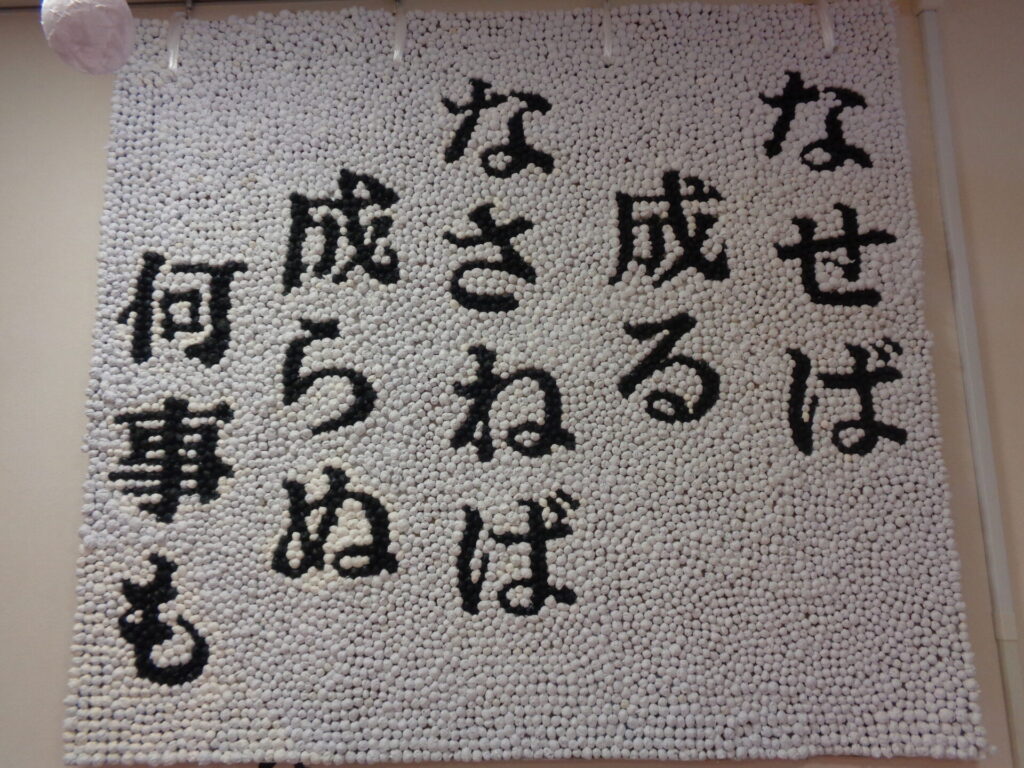 なせば
成る
なさねば
成らぬ
何事も